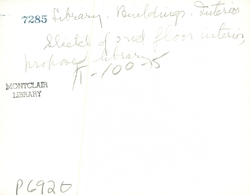 7285 Library. Buildings. Interior
Sketch of 2nd floor interior,
proposed library
II-100-5
MONTCLAIR
LIBRARY
P6920